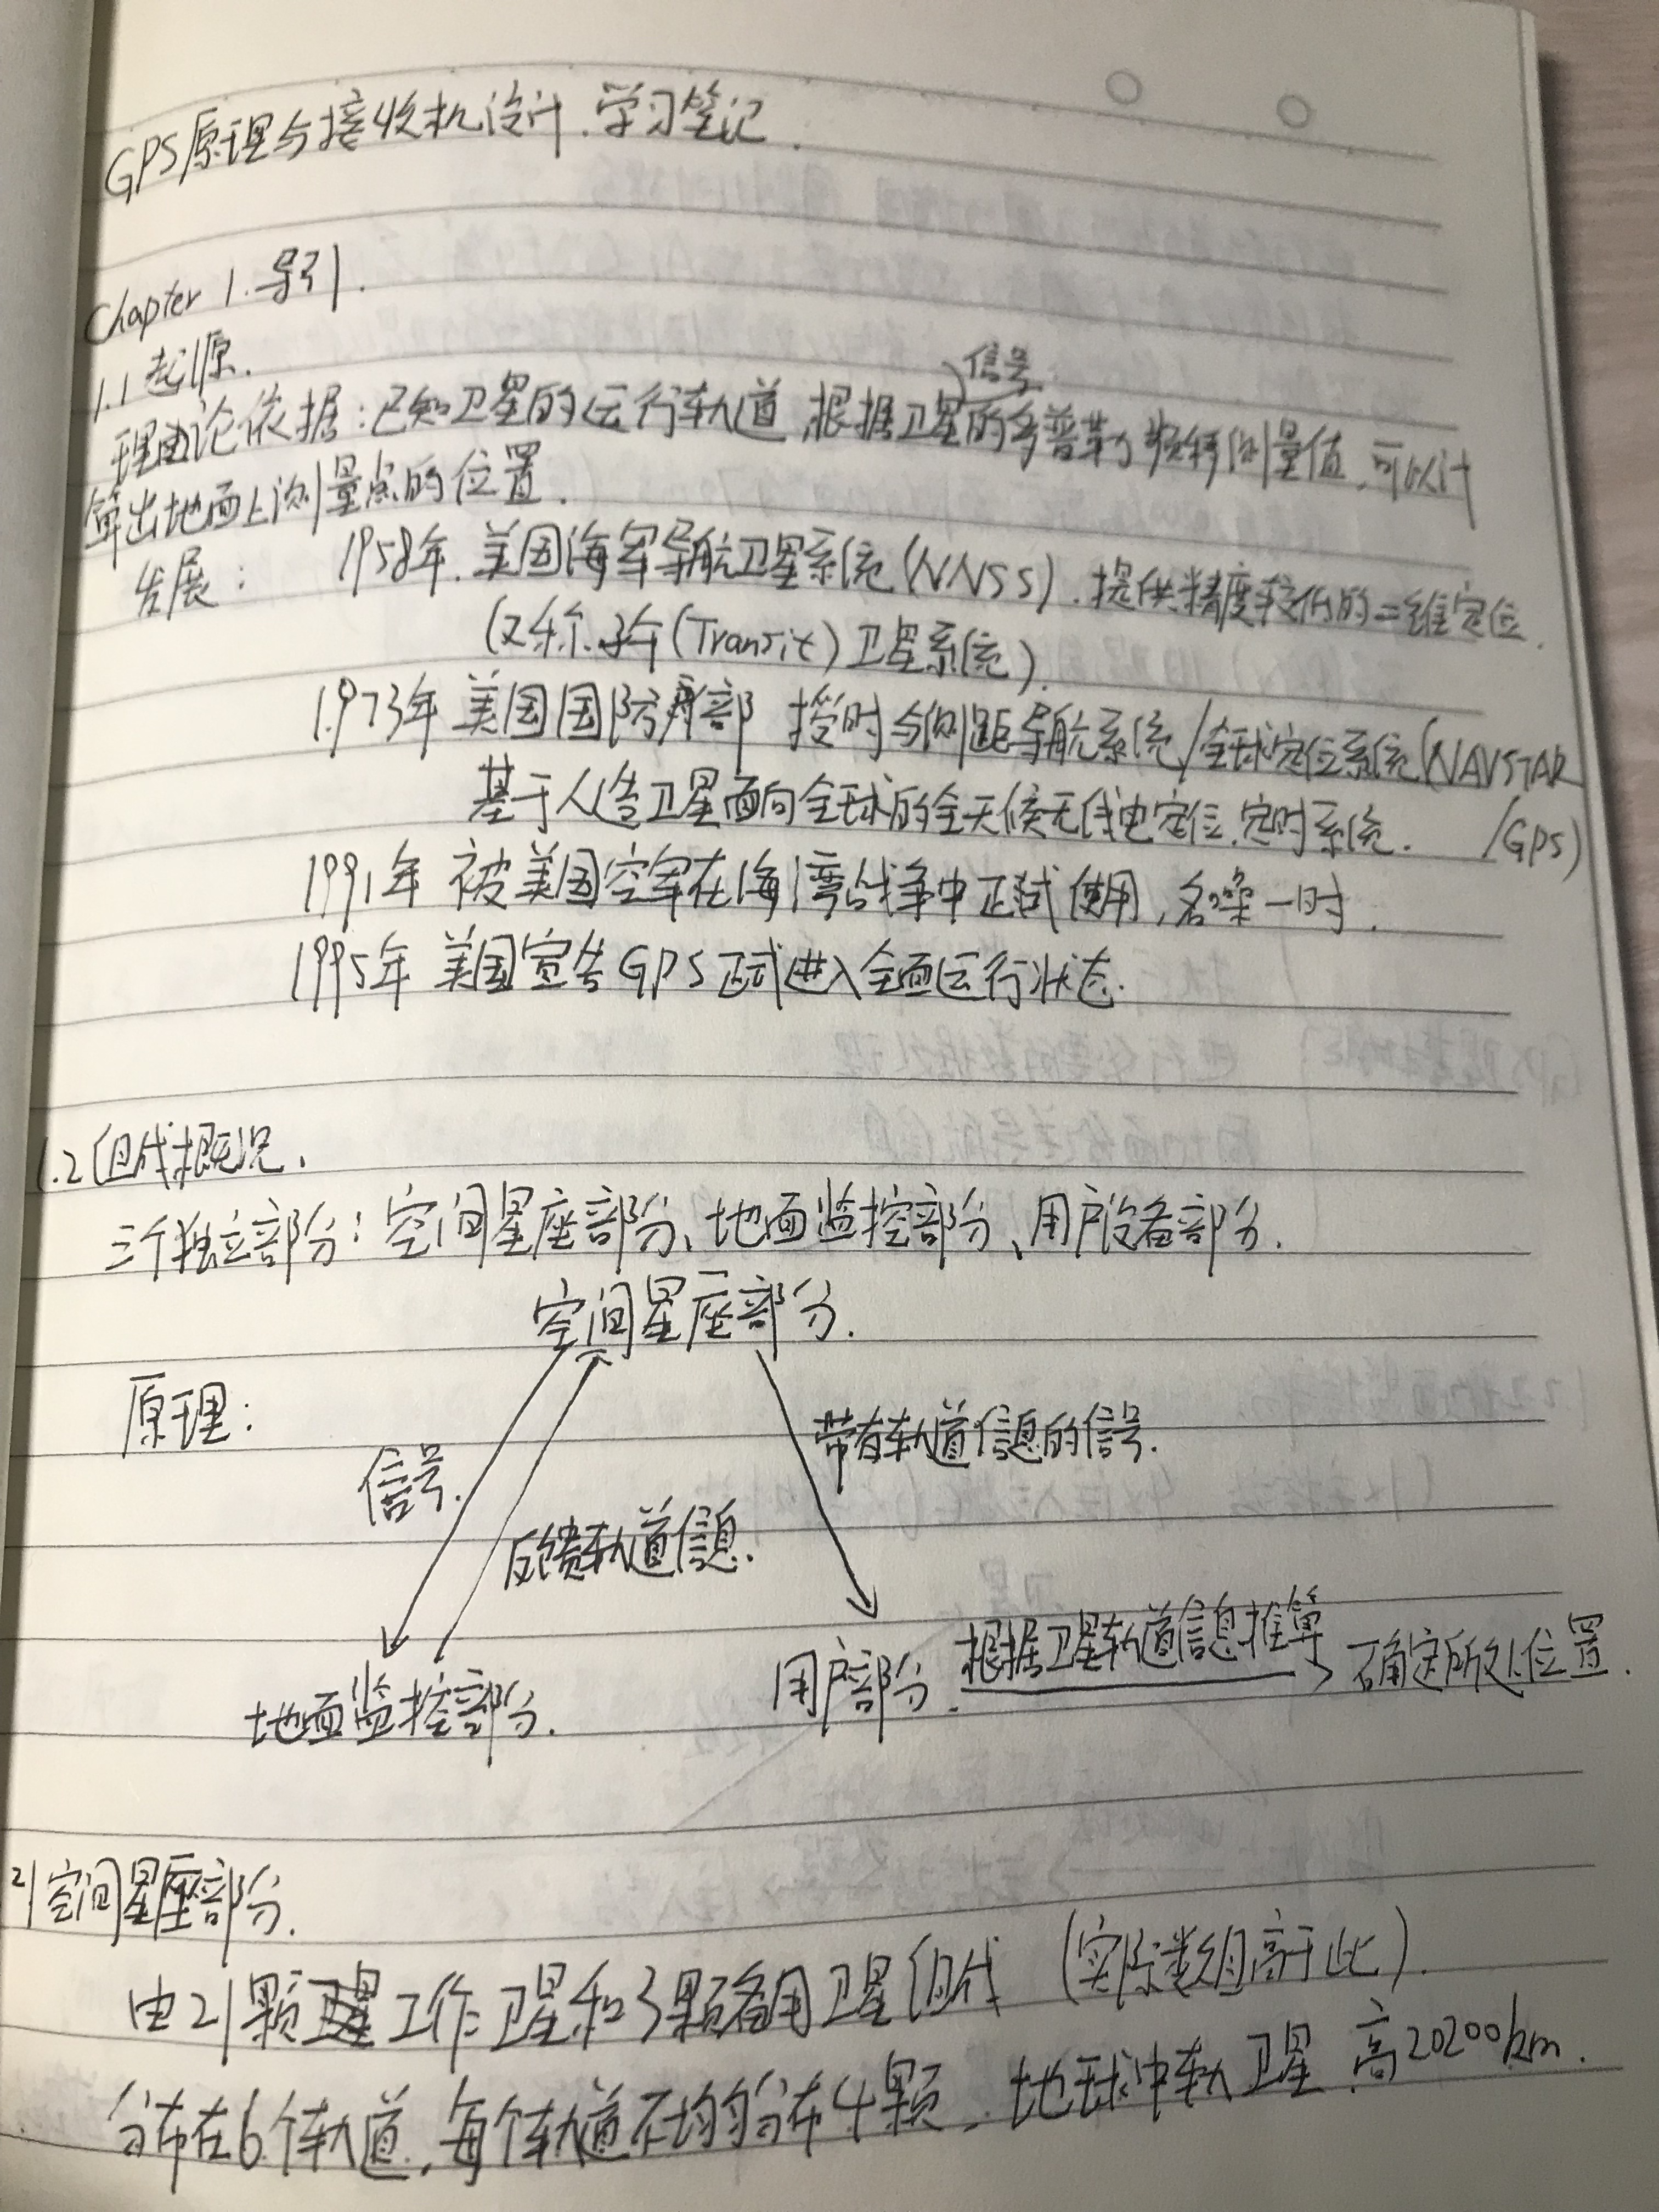 GPS原理与接收机设计.学习笔记.
Chapter 1.导引.
1.1 起源.
理论依据:已知卫星的运行轨道,根据卫星信号的多普勒频移测量值,可以计
算出地面上测量点的位置.
发展: 1958年.美国海军导航卫星系统(NNSS).提供精度较低的二维定位.
(又称子午(Transit)卫星系统).
1973年 美国国防部 授时与测距导航系统/全球定位系统(NAVSTAR
/GPS)
基于人造卫星面向全球的全天候无线电定位,定时系统.
1991年 被美国空军在海湾战争中正式使用,名噪一时.
1995年 美国宣告GPS正式进入全面运行状态.
1.2 组成概况.
三个独立部分:空间星座部分、地面监控部分、用户设备部分.
空间星座部分.
原理:
带有轨道信息的信号.
信号.
反馈轨道信息.
用户部分. 根据卫星轨道信息推算 确定所处位置.
地面监控部分.
2| 空间星座部分.
由21颗工作卫星和3颗备用卫星组成 (实际数组高于此).
分布在6个轨道,每个轨道不均匀分布4颗.地球中轨卫星 高20200km.